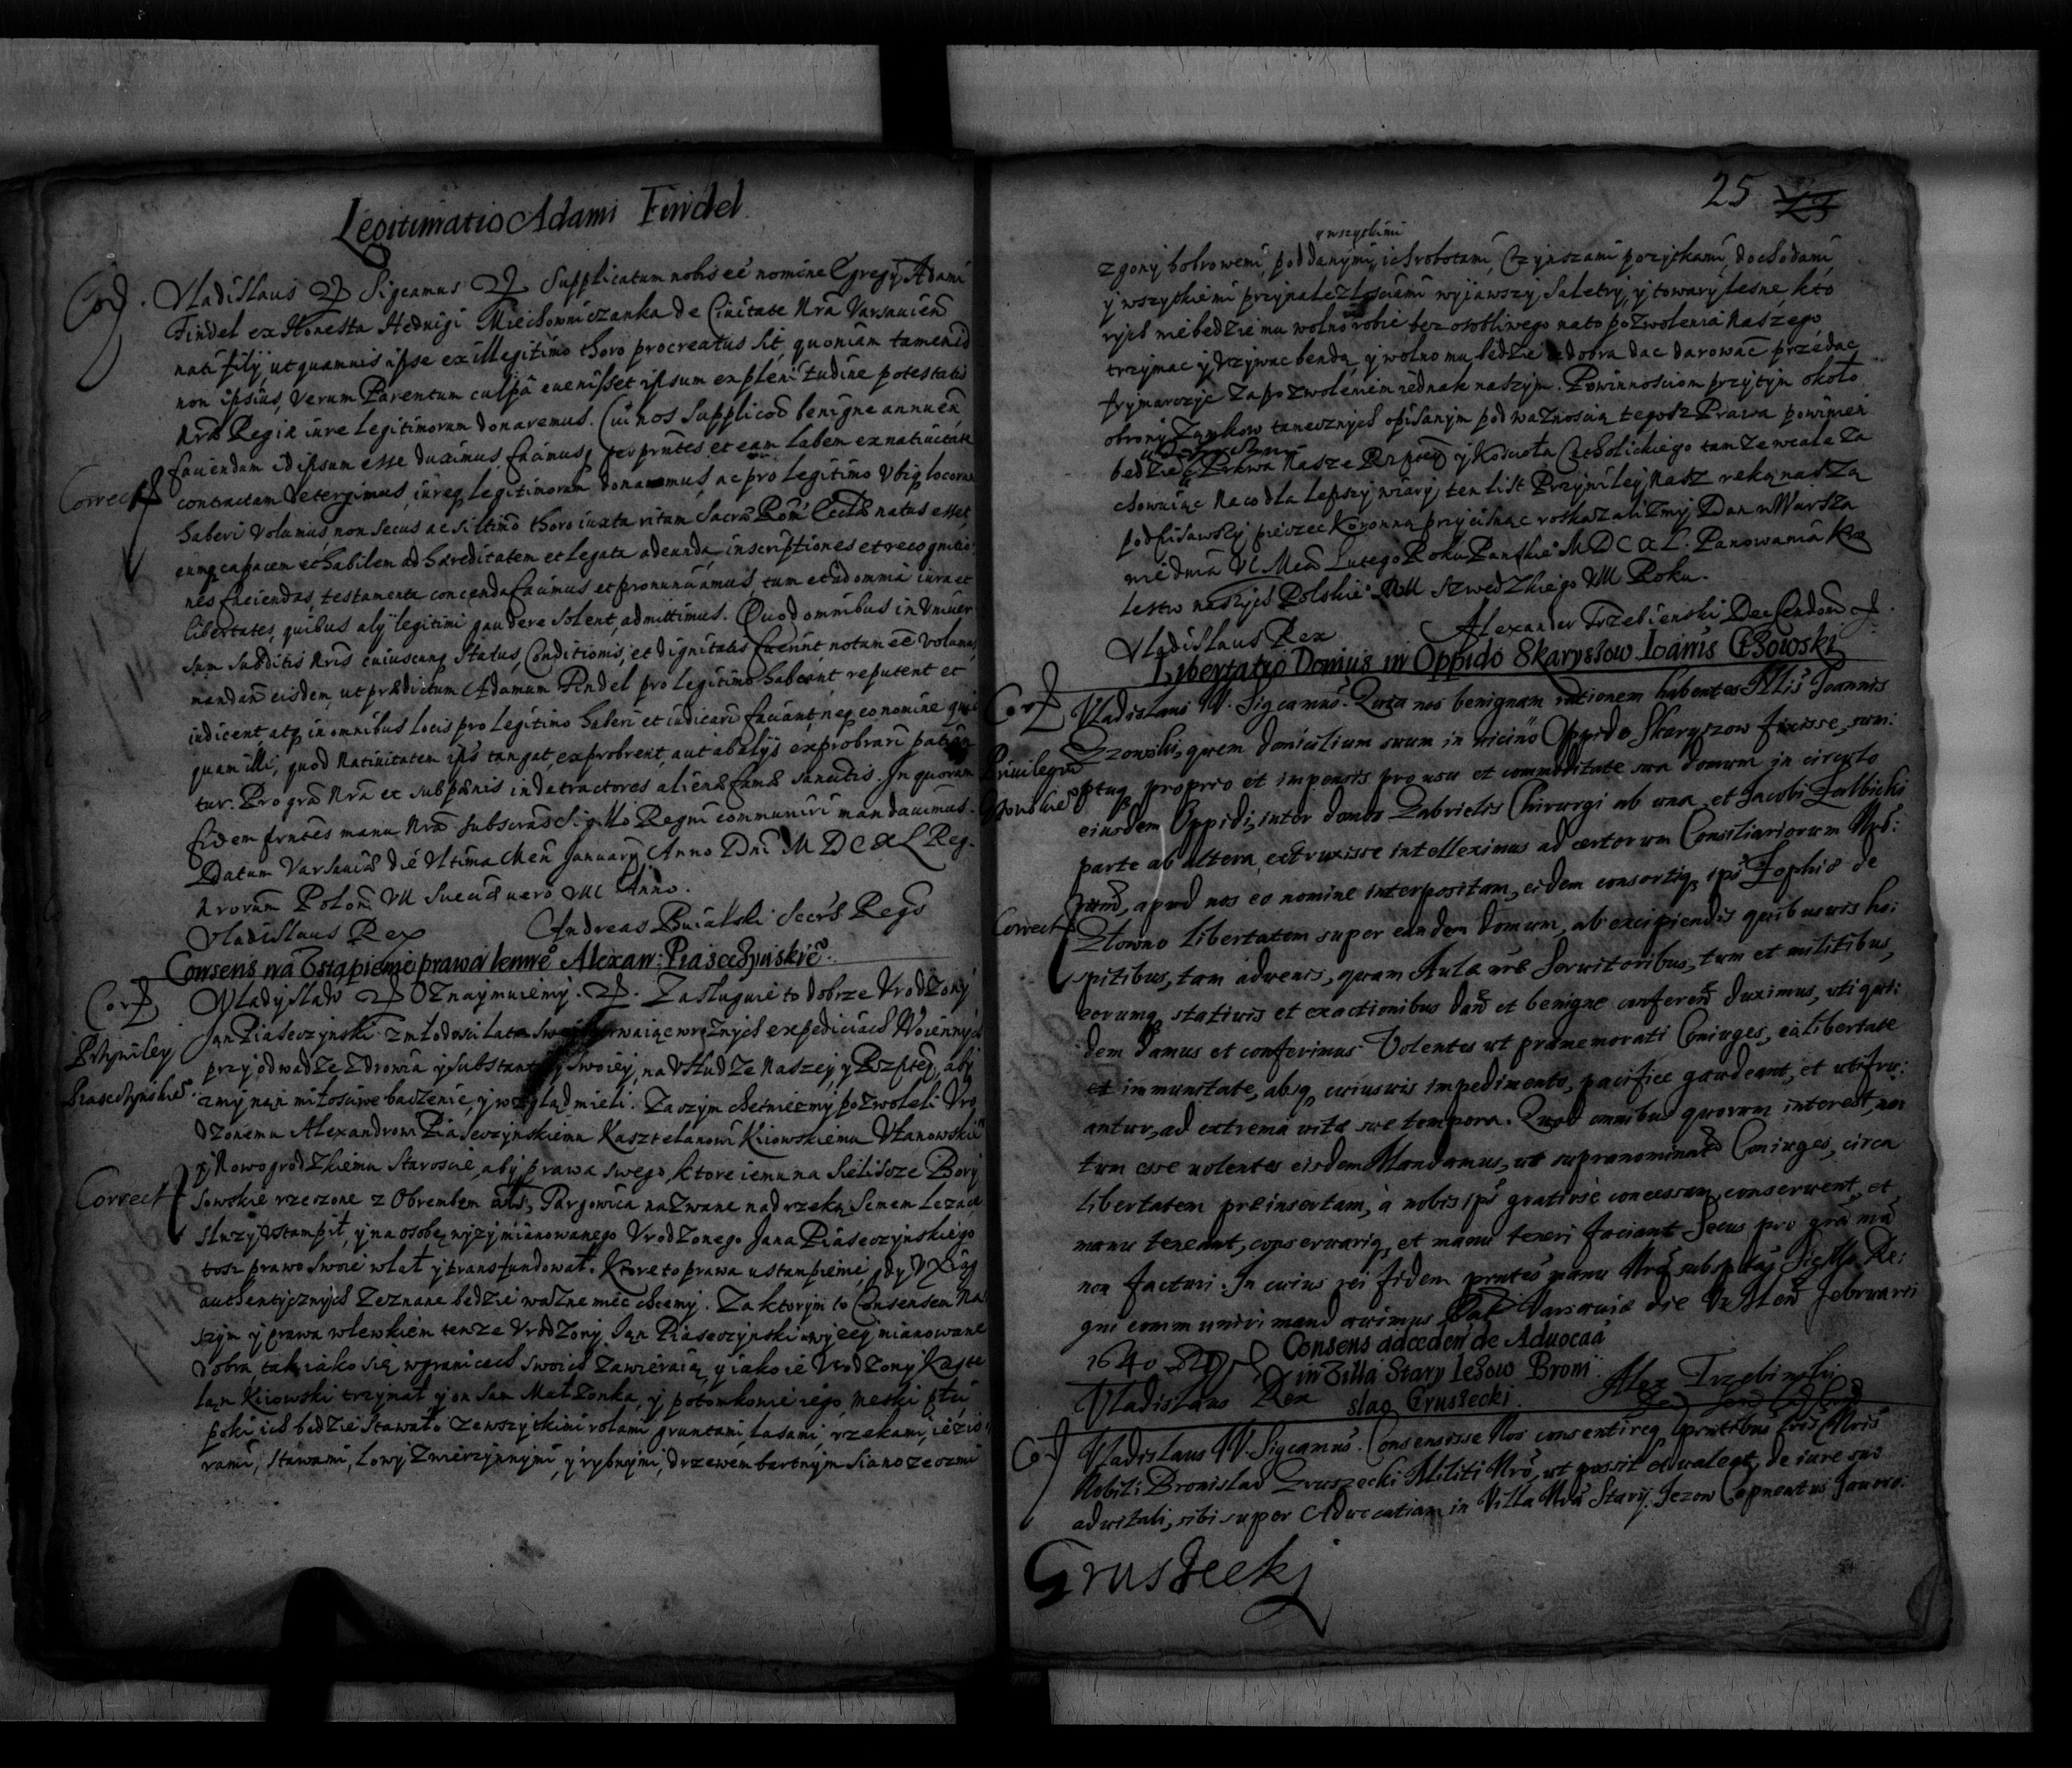 Legitimatio Adami Findel
Cor. Vladislaus Sigcamus Supplicatum nobis ee nomine Egregij Adami
Findel ex Honesta Hednigi Miechowniczanka de Civitate Nra Varsavien
nati filij, ut quamvis ipse ex illegitimo thoro procreatus sit, quoniam tamen id
non ipsius, verum Parentum culpa evenisset ipsum ex plenitudine potestatis
Nrae Regiae iure legitimorum donaremus. Cui nos supplicaoi benigne annuen
faciendum id ipsum esse duximus, facimusq per prntes, et eam labem ex nativitate
Correct contractam detergimus, iureq legitimorum donamus, ac pro legitimo ubiq locorum
haberi volumus, non secus ac si ltimo thoro iuxta ritum Sacrae Rom Ecclae natus esset,
eumq capacem et habilem ad haereditatem et legata adeunda, inscriptiones et recognitio
nes faciendas, testamenta concenda facimus et pronunciamus, tum et ad omnia iura et
libertates, quibus alij legitimi gaudere solent, admittimus. Quod omnibus in Univer
sum subditis Nris cuiuscunq status, Conditionis, et dignitatis fuerint notum ee volumus
mandan eisdem, ut praedictum Adamum Findel pro legitimo habeant, reputent et
iudicent, atq in omnibus locis pro legitimo haberi et iudicari faciant, neq eo nomine quic
quam illi, quod nativitatem ips tangat, exprobrent, aut ab alijs exprobrari patian
tur. Pro gra Nra ex sub paenis in detractores alienae famae sancitis. In quorum
fidem prntes manu Nra subscras Sigillo Regni communiri mandavimus.
Datum Varsaviae die Ultima Men Januarij Anno Dni MDCXL Reg.
Nrorum Polon VII Sueciae vero VIII Anno.
Vladislaus Rex Andreas Buialski Secrs Regs
Consens na Ustapienie prawa lenne Alexan: Piaseczynskie
Cor Vladyslaw Oznaymuiemy. Zasluguie to dobrze Urodzony
Jan Piaseczynski z mlodosci lat swoich trwaiąc w roznych expediciach Woiennych
Przywiley przy odwadze zdrowia y substantiey swoiey, na usludze Naszey y Rzptey, aby
Piaseczynskie zmy nań miłosciwe baczenie, y wzgląd mieli. Za czym chetniezmy pozwoleli Uro
dzonemu Alexandrowi Piaseczynskiemu Kasztelanowi Kiiowskiemu Ulanowskie
y Nowogrodzkiemu Staroscie, aby prawa swego, ktore iemu na Sieliscze Bory
Correct sowskie rzeczone z Obrembem als, Pargowica nazwane nad rzeką Semem lezące
sluzy ustąmpił, y na osobę wyzy mianowanego Urodzonego Jana Piaseczynskiego
tosz prawo swoie wlał y transfundował. Ktore to prawa ustampienie, gdy u Xiąg
authentycznych zeznane bedzie wazne miec chcemy. Za ktorym to Consensem Na
szym y prawa wlewkiem tenze Urodzony Jan Piaseczynski wyzey mianowane
dobra, tak iako się w granicach swoich zawieraią, y iako ie Urodzony Kaszte
lan Kiiowski trzymał y on sam Małzonka, y potomkowie iego, męski płci
poki ich bedzie stawało ze wszytkimi rolami, gruntami, lasami, rzekami, iezio
rami, stawami, lowy zwierzynnymi, y rybnymi, drzewem bartnym sianozeczmi
25
y wszystkimi
z gony bobrowemi, poddanymi, ich robotami, Czynszami pozytkami, dochodami,
y wszytkiemi przynaleznosciami wyiawszy, Saletry, y towary lesne, kto
rych nie bedzie mu wolno robic bez osobliwego na to pozwolenia Naszego
trzymac y uzywac bendą, y wolno mu bedzie dobra dac darowac przedac
frymarczyc za pozwoleniem iednak naszym. Powinnosciom przy tym około
obrony Zamkow tamecznych opisanym pod waznoscią tegosz Prawa powinien
bedzie Prawa Nasze Rzptey y Koscioła Catholickiego tamze wcale za
chowuiąc Na co dla lepszy wiary, ten list Przywiley Nasz ręką naszą
podpisawszy pieczęc Koronną przycisnąc roskazalizmy Dan w Warsza
wie dnia VI Mca Lutego Roku Panskie MDCXL. Panowania Kro
lestw naszych Polskie VIII Szwedzkiego VIII Roku.
Vladislaus Rex Alexander Trzebienski Dec Cendom
Libertatio Domus in Oppido Skaryszow Ioannis Czsowski
Cor Vladislaus IV. Sigcamus. Quia nos benignam rationem habentes Nblis Joannis
Privilegiu Czzowski, quem domicilium suum in vicino Oppido Skaryszow fixisse, sum:
ptuq proprio et impensis pro usu et commoditate sua domum in circulo
eiusdem Oppidi, inter domos Gabrielis Chirurgi ab una, et Jacobi Galbicki
parte ab altera, extruxisse intelleximus ad certorum Consiliariorum Nro:
rum, apud nos eo nomine interpositam, eidem consortiq ips Zophiae de
Correct Złowno libertatem super eandem domum, ab excipiendis quibusvis ho:
spitibus, tam advenis, quam Aulae nrae Servitoribus, tum et militibus,
eorumq stativis et exactionibus dan et benigne conferen duximus, uti qui:
dem damus et conferimus. Volentes ut praememorati Coniuges, ea libertate
et immunitate, absq cuiusvis impedimento, pacifice gaudeant, et utifru:
antur, ad extrema vitae suae tempora. Quod omnibus quorum interest, no:
tum esse volentes eisdem Mandamus, ut supranominatos Coniuges, circa
libertatem praeinsertam, à nobis ips gratiose concessam, conservent, et
manu teneant, conservariq, et manu teneri faciant Secus pro gra nra
non facturi. In cuius rei fidem prntes manu Nra subscptas Sigillo Re:
gni communiri mandavimus Dat Varsaviae die VI Men Februarii
1640 Consens ad ceden de Advocaa
in Villa Stary Iezow Broni
Vladislaus Rex slao Gruszecki. Alex Trzebinski
Cor Vladislaus IV. Sigcamus. Consensisse Nos consentireq prntibus lris Nris
Nobili Bronislao Gruszecki Militi Nro, ut possit et valeat, de iure suo
advitali, sibi super Advocatiam in Villa Nra Stary Jezow
Gruszecki